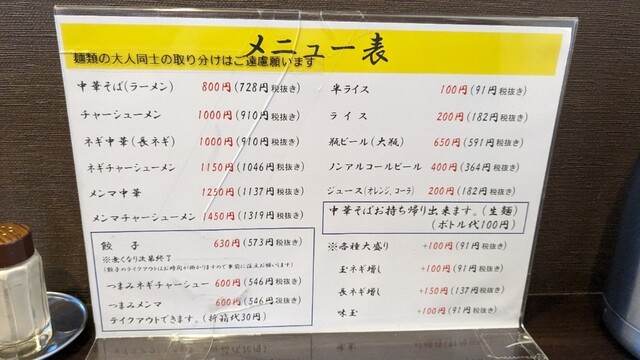 メニュー表
麺類の大人同士の取り分けはご遠慮願います
中華そば(ラーメン) 800円(728円税抜き)
チャーシューメン 1000円(910円税抜き)
ネギ中華(長ネギ) 1000円(910円税抜き)
ネギチャーシューメン 1150円(1046円税抜き)
メンマ中華 1250円(1137円税抜き)
メンマチャーシューメン 1450円(1319円税抜き)
餃子 630円(573円税抜き)
※無くなり次第終了
(餃子のテイクアウトはお時間が掛かりますので事前に注文お願いします)
つまみネギチャーシュー 600円(546円税抜き)
つまみメンマ 600円(546円税抜き)
テイクアウトできます。(折箱代30円)
半ライス 100円(91円税抜き)
ライス 200円(182円税抜き)
瓶ビール(大瓶) 650円(591円税抜き)
ノンアルコールビール 400円(364円税抜き)
ジュース(オレンジ、コーラ) 200円(182円税抜き)
中華そばお持ち帰り出来ます。(生麺)
(ボトル代100円)
※各種大盛り +100円(91円税抜き)
玉ネギ増し +100円(91円税抜き)
長ネギ増し +150円(137円税抜き)
味玉 +100円(91円税抜き)